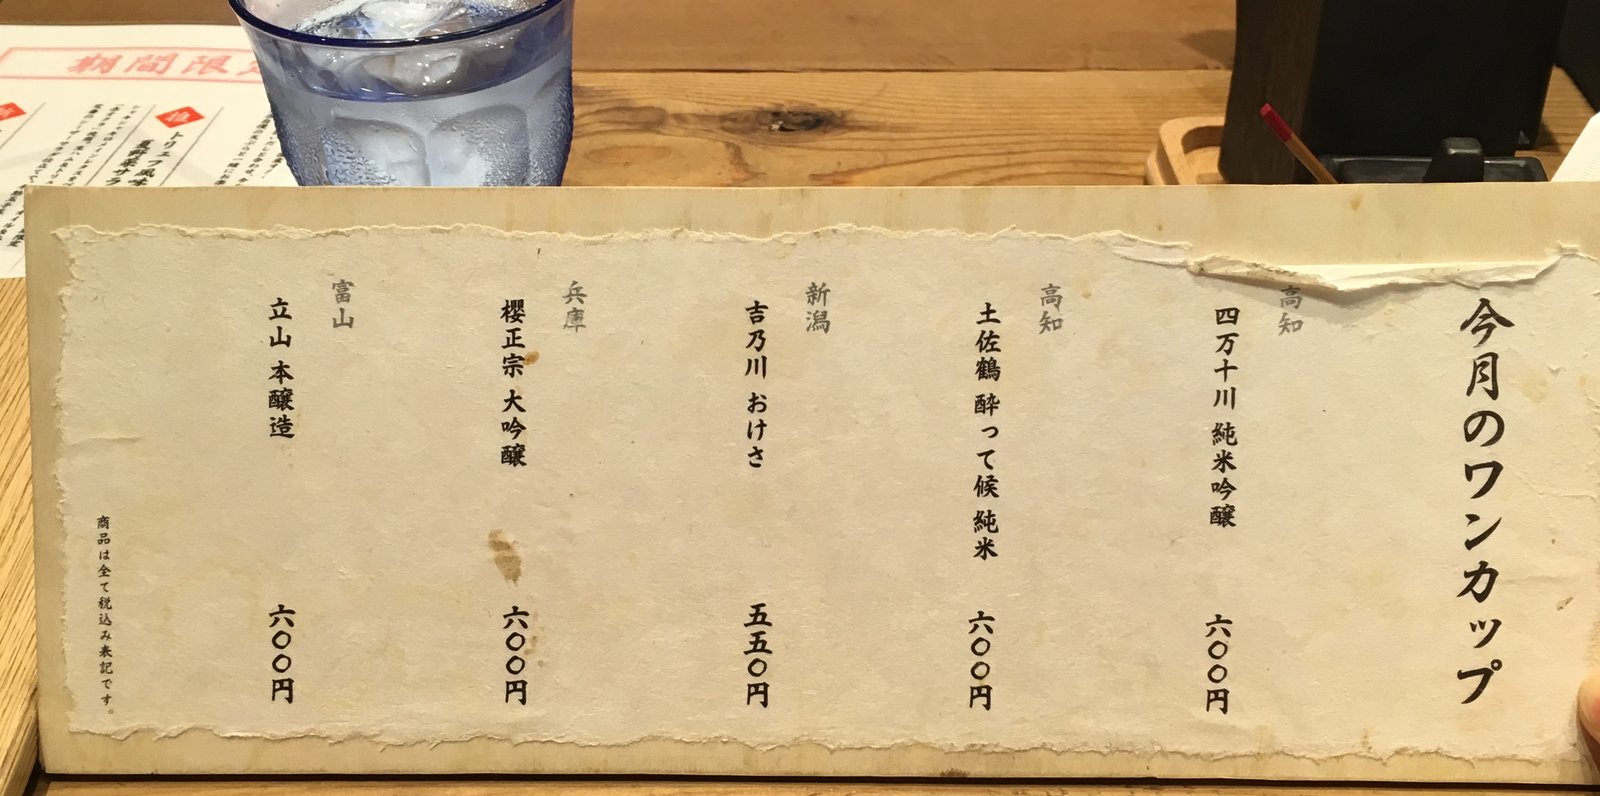 今月のワンカップ
高知
四万十川 純米吟醸 六〇〇円
高知
土佐鶴 酔って候 純米 六〇〇円
新潟
吉乃川 おけさ 五五〇円
兵庫
櫻正宗 大吟醸 六〇〇円
富山
立山 本醸造 六〇〇円
商品は全て税込み表記です。
期間限
トリュフ風味
夏野菜サラ